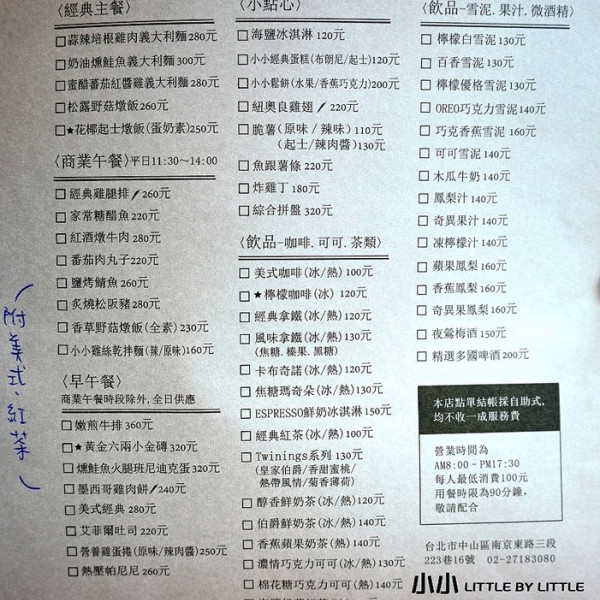 〈經典主餐〉
□蒜辣培根雞肉義大利麵280元
□奶油燻鮭魚義大利麵300元
□蜜醋蕃茄紅醬雞義大利麵280元
□松露野菇燉飯260元
□★花椰起士燉飯(蛋奶素)250元
〈商業午餐〉平日11:30~14:00
□經典雞腿排 260元
□家常糖醋魚 220元
□紅酒燉牛肉 280元
□番茄肉丸子220元
□鹽烤鯖魚 260元
□炙燒松阪豬280元
□香草野菇燉飯(全素)230元
□小小雞絲乾拌麵(辣/原味)160元
附美式、紅茶
〈早午餐〉
商業午餐時段除外,全日供應
□嫩煎牛排 360元
□★黃金六兩小金磚320元
□燻鮭魚火腿班尼迪克蛋320元
□墨西哥雞肉餅 240元
□美式經典 280元
□艾菲爾吐司 220元
□營養雞蛋捲(原味/辣肉醬)250元
□熱壓帕尼尼 260元
〈小點心〉
□海鹽冰淇淋 120元
□小小經典蛋糕(布朗尼/起士)120元
□小小鬆餅(水果/香蕉巧克力)200元
□紐奧良雞翅 220元
□脆薯(原味/辣味)110元
(起士/辣肉醬)130元
□魚跟薯條 220元
□炸雞丁 180元
□綜合拼盤 320元
〈飲品-咖啡.可可.茶類〉
□美式咖啡(冰/熱)100元
□★檸檬咖啡(冰) 120元
□經典拿鐵(冰/熱)120元
□風味拿鐵(冰/熱)130元
(焦糖.榛果.黑糖)
□卡布奇諾(冰/熱)120元
□焦糖瑪奇朵(冰/熱)130元
□ESPRESSO鮮奶冰淇淋150元
□經典紅茶(冰/熱)100元
□Twinings系列 130元
(皇家伯爵/香甜蜜桃/
熱帶風情/菊香薄荷)
□醇香鮮奶茶(冰/熱)120元
□伯爵鮮奶茶(冰/熱)140元
□香蕉蘋果奶茶(熱)140元
□濃情巧克力可可(冰/熱)130元
□棉花糖巧克力可可(冰/熱)140元
〈飲品-雪泥.果汁.微酒精〉
□檸檬白雪泥130元
□百香雪泥 130元
□檸檬優格雪泥 130元
□OREO巧克力雪泥140元
□巧克香蕉雪泥 160元
□可可雪泥 140元
□木瓜牛奶 140元
□鳳梨汁 140元
□奇異果汁 140元
□凍檸檬汁 140元
□蘋果鳳梨 160元
□香蕉鳳梨 160元
□奇異果鳳梨 160元
□夜鶯梅酒 150元
□精選多國啤酒200元
本店點單結帳採自助式,
均不收一成服務費
營業時間為
AM8:00-PM17:30
每人最低消費100元
用餐時限為90分鐘,
敬請配合
台北市中山區南京東路三段
223巷16號 02-27183080
小小 LITTLE BY LITTLE